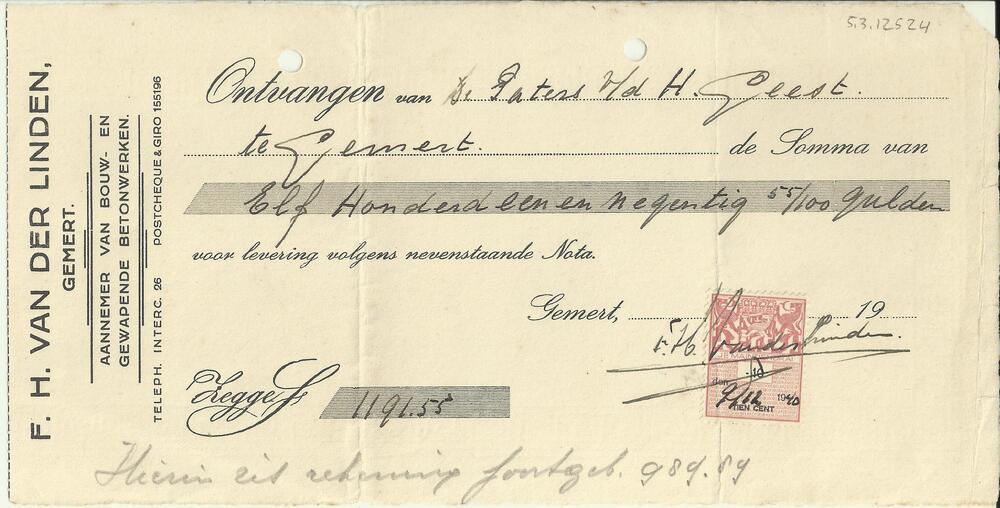 5.3.12524
F. H. VAN DER LINDEN,
GEMERT.
AANNEMER VAN BOUW- EN
GEWAPENDE BETONWERKEN.
TELEPH. INTERC. 26 POSTCHEQUE & GIRO 155196
Ontvangen van De Paters v/d H. Geest.
te Gemert. de Somma van
Elf Honderd een en negentig 55/100 gulden
voor levering volgens nevenstaande Nota.
Gemert, 19
F. H. van der Linden.
JE MAINTIENDRAI
10
den 9/12 1940
TIEN CENT
Zegge f 1191.55
Hierin zit rekening 989.89